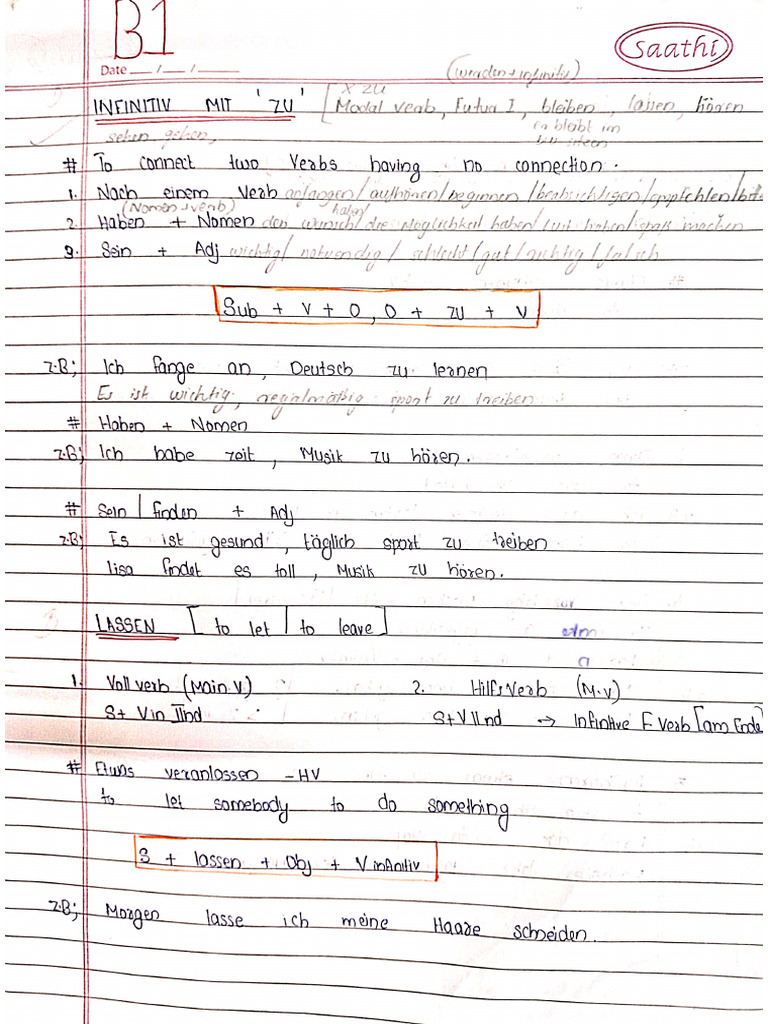 B1
saathi
Date __/__/____
(werden + infinitiv)
x zu
INFINITIV MIT 'ZU' [Modal verb, Futur I, bleiben, lassen, hören
sehen gehen,
es bleibt im
# To connect two Verbs having no connection.
1. Nach einem Verb anfangen/aufhören/beginnen/beabsichtigen/empfehlen/bitt
(Nomen+verb) haben
2. Haben + Nomen den wunsch/die möglichkeit haben/Lust haben/spaß machen
3. Sein + Adj wichtig/notwendig/schlecht/gut/richtig/falsch
Sub + V + O, O + ZU + V
z.B; Ich fange an, Deutsch zu lernen
Es ist wichtig, regelmäßig sport zu treiben
# Haben + Nomen
z.B; Ich habe zeit, Musik zu hören.
# Sein / finden + Adj
z.B; Es ist gesund, täglich sport zu treiben
lisa findet es toll, Musik zu hören.
LASSEN [to let / to leave]
1. Voll verb (Main V) 2. Hilfsverb (M.V)
S+ V in IInd S+V IInd → Infinitive F Verb [am Ende]
# Etwas veranlassen - HV
to let somebody to do something
S + lassen + Obj + V infinitiv
z.B; Morgen lasse ich meine Haare schneiden.